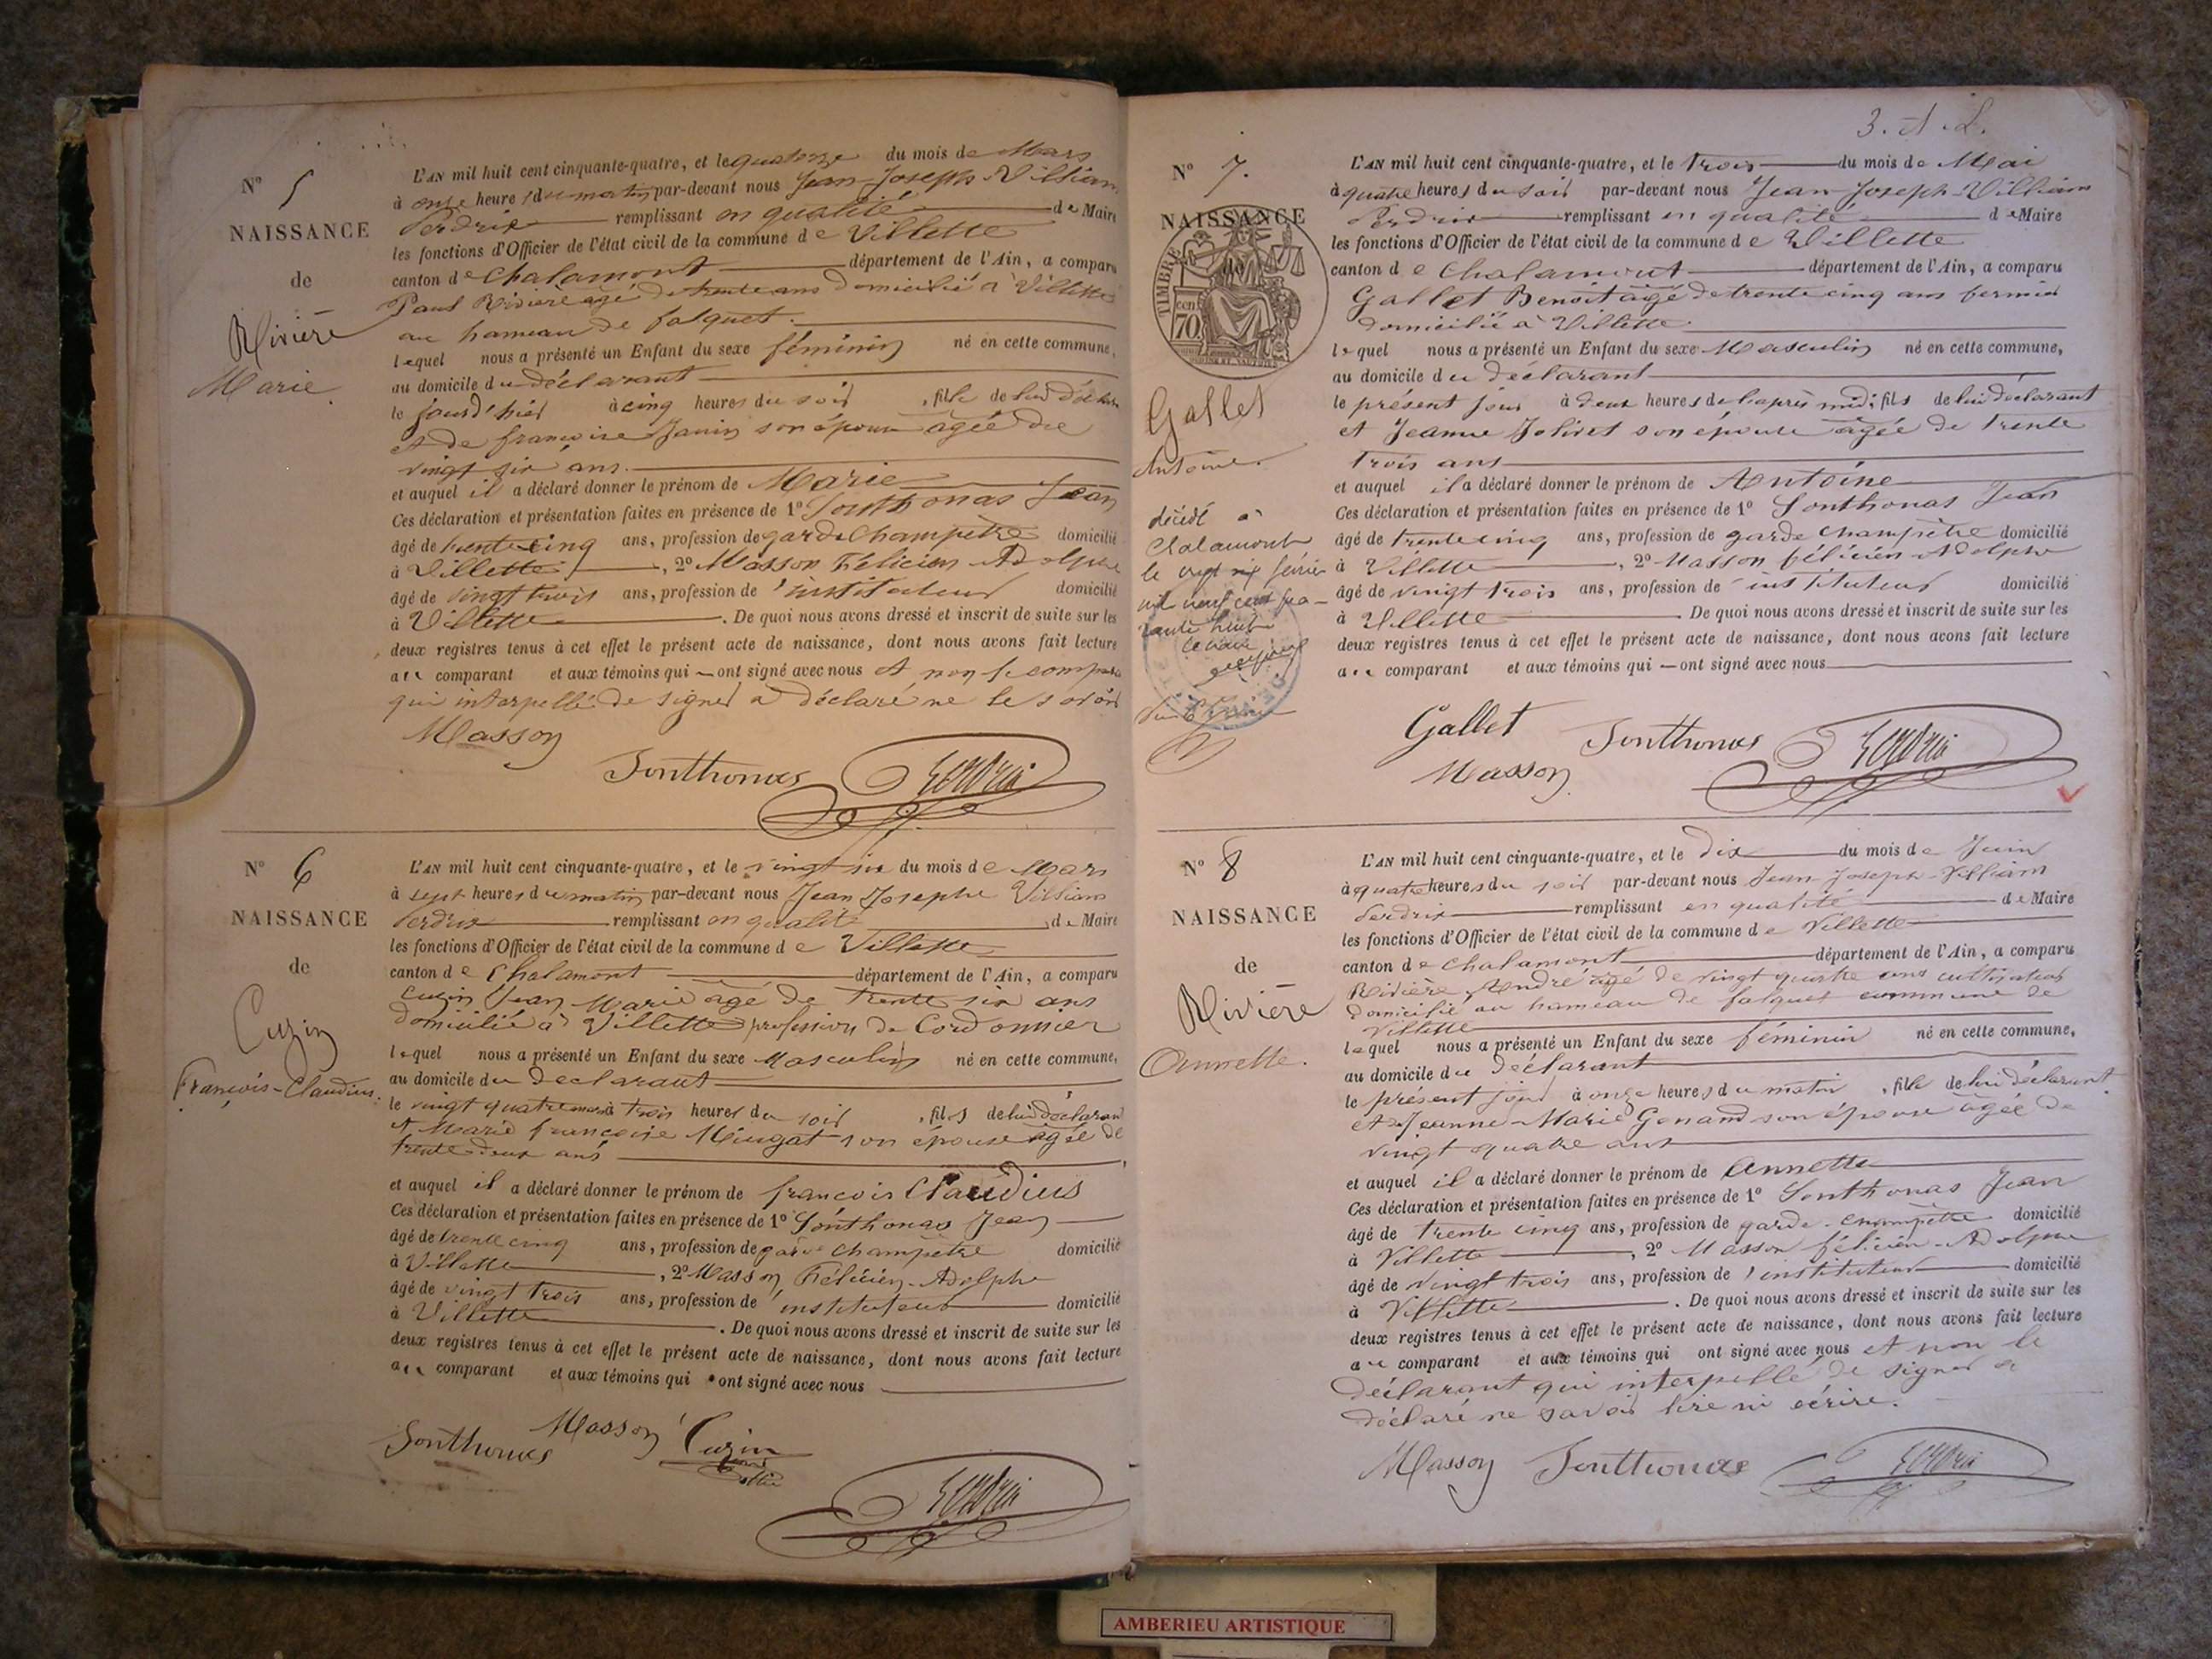 Nº 5
NAISSANCE
de
Rivière
Marie.
L'AN mil huit cent cinquante-quatre, et le quatorze du mois de Mars
à onze heures du matin par-devant nous Jean-Joseph-Villiam
Perdrix remplissant en qualité de Maire
les fonctions d'Officier de l'état civil de la commune de Villette
canton de Chalamont département de l'Ain, a comparu
Paul Rivière agé de trente ans domicilié à Villette
au hameau de falquet.
lequel nous a présenté un Enfant du sexe féminin né en cette commune,
au domicile du déclarant
le jour d'hier à cinq heures du soir, fille de lui déclar
et de françoise Janin son épouse agée de
vingt six ans.
et auquel il a déclaré donner le prénom de Marie
Ces déclaration et présentation faites en présence de 1º Sonthonas Jean
âgé de trente cinq ans, profession de garde champêtre domicilié
à Villette, 2º Masson Félicien Adolphe
âgé de vingt trois ans, profession de l'instituteur domicilié
à Villette. De quoi nous avons dressé et inscrit de suite sur les
deux registres tenus à cet effet le présent acte de naissance, dont nous avons fait lecture
au comparant et aux témoins qui ont signé avec nous et non le compara
qui interpellé de signer a déclaré ne le savoir
Masson
Sonthonas Perdrix
Nº 6
NAISSANCE
de
Cuzin
François-Claudius.
L'AN mil huit cent cinquante-quatre, et le vingt six du mois de Mars
à sept heures du matin par-devant nous Jean Josephe Villiam
Perdrix remplissant en qualité de Maire
les fonctions d'Officier de l'état civil de la commune de Villette
canton de Chalamont département de l'Ain, a comparu
Cuzin Jean Marie agé de trente six ans
domicilié à Villette profession de Cordonnier
lequel nous a présenté un Enfant du sexe Masculin né en cette commune,
au domicile du declarant
le vingt quatre mars à trois heures du soir, fils de lui déclaran
et Marie françoise Mingat son épouse agée de
trente deux ans
et auquel il a déclaré donner le prénom de françois Claudius
Ces déclaration et présentation faites en présence de 1º Sonthonas Jean
âgé de trente cinq ans, profession de garde champêtre domicilié
à Villette, 2º Masson Félicien-Adolphe
âgé de vingt trois ans, profession de instituteur domicilié
à Villette. De quoi nous avons dressé et inscrit de suite sur les
deux registres tenus à cet effet le présent acte de naissance, dont nous avons fait lecture
au comparant et aux témoins qui ont signé avec nous
Sonthonas Masson Cuzin
Perdrix
3. A. L.
Nº 7.
NAISSANCE
de
TIMBRE
cen 70
Gallet
Antoine.
décédé à
Chalamont
le vingt six février
mil neuf cent qua-
rante huit
L'AN mil huit cent cinquante-quatre, et le trois du mois de Mai
à quatre heures du soir par-devant nous Jean-Joseph-Villiam
Perdrix remplissant en qualité de Maire
les fonctions d'Officier de l'état civil de la commune de Villette
canton de Chalamont département de l'Ain, a comparu
Gallet Benoit agé de trente cinq ans fermier
domicilié à Villette.
lequel nous a présenté un Enfant du sexe Masculin né en cette commune,
au domicile du déclarant
le présent jour à deux heures de l'après midi, fils de lui déclarant
et Jeanne Jolivet son épouse agée de trente
trois ans
et auquel il a déclaré donner le prénom de Antoine
Ces déclaration et présentation faites en présence de 1º Sonthonas Jean
âgé de trente cinq ans, profession de garde champêtre domicilié
à Villette, 2º Masson félicien-Adolphe
âgé de vingt trois ans, profession de instituteur domicilié
à Villette. De quoi nous avons dressé et inscrit de suite sur les
deux registres tenus à cet effet le présent acte de naissance, dont nous avons fait lecture
au comparant et aux témoins qui ont signé avec nous
Gallet Sonthonas Perdrix
Masson
Nº 8
NAISSANCE
de
Rivière
Annette.
L'AN mil huit cent cinquante-quatre, et le dix du mois de Juin
à quatre heures du soir par-devant nous Jean-Joseph-Villiam
Perdrix remplissant en qualité de Maire
les fonctions d'Officier de l'état civil de la commune de Villette
canton de Chalamont département de l'Ain, a comparu
Rivière André agé de vingt quatre ans cultivateur
domicilié au hameau de falquet commune de
Villette
lequel nous a présenté un Enfant du sexe féminin né en cette commune,
au domicile du déclarant
le présent jour à onze heures du matin, fille de lui déclarant
et Jeanne-Marie Genand son épouse agée de
vingt quatre ans
et auquel il a déclaré donner le prénom de Annette
Ces déclaration et présentation faites en présence de 1º Sonthonas Jean
âgé de trente cinq ans, profession de garde-champêtre domicilié
à Villette, 2º Masson félicien-Adolphe
âgé de vingt trois ans, profession de l'instituteur domicilié
à Villette. De quoi nous avons dressé et inscrit de suite sur les
deux registres tenus à cet effet le présent acte de naissance, dont nous avons fait lecture
au comparant et aux témoins qui ont signé avec nous et non le
déclarant qui interpellé de signer a
déclaré ne savoir lire ni écrire.
Masson Sonthonas Perdrix
AMBERIEU ARTISTIQUE